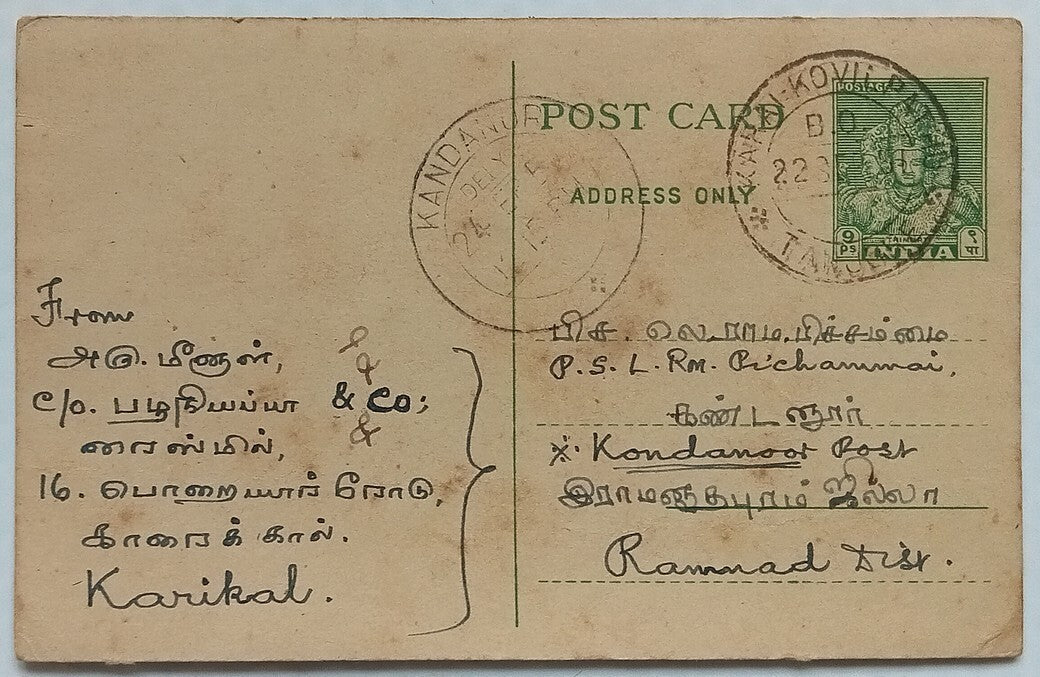 POST CARD
ADDRESS ONLY
POSTAGE
9
PS
९
पा
INDIA
KANDANUR
B.O.
22
24
From
அரு. மீனாள்,
C/o. பழநியப்பா & Co;
ரைஸ்மில்,
16. பொறையார் ரோடு,
காரைக்கால்.
Karikal.
பிச. லெ. ராம. பிச்சம்மை
P. S. L. Rm. Pichammai,
கண்டனூர்
Kondanoor Post
இராமனாதபுரம் ஜில்லா
Ramnad Dist.